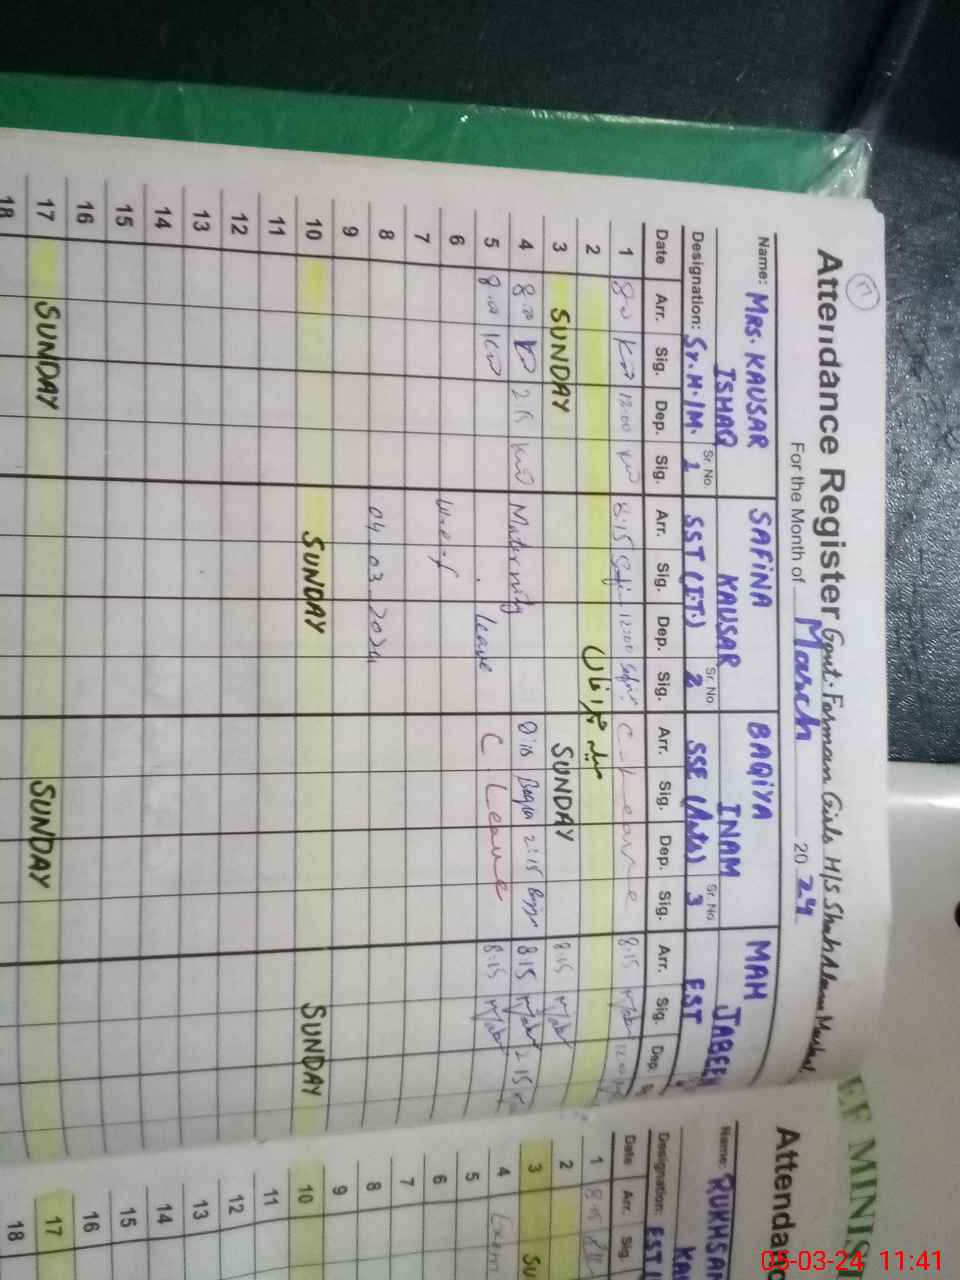 17
Attendance Register Govt. Farman Girls H/S Shah Alam
For the Month of March 2024
Name: MRS. KAUSAR ISHAQ SAFINA KAUSAR BAQIYA INAM MAH JABEEN
Designation: Sr. H. M. Sr. No. 1 SST (I.T.) Sr. No. 2 SSE (Arts) Sr. No. 3 EST
Date Arr. Sig. Dep. Sig. Arr. Sig. Dep. Sig. Arr. Sig. Dep. Sig. Arr. Sig. Dep.
1 8:00 12:00 8:15 12:00 C-Leave 8:15 12:00
2
3 SUNDAY SUNDAY 8:15
4 8:00 2:15 Maternity 8:15 2:15 8:15 2:15
5 8:00 Leave C. Leave 8:15
6 w.e.f
7
8 04.03.2024
9
10 SUNDAY SUNDAY
11
12
13
14
15
16
17 SUNDAY SUNDAY
18
EF MINIS
Attendanc
Name: RUKHSAN
Designation: EST
Date Arr. Sig.
1 8:15
2
3 SU
4
5
6
7
8
9
10
11
12
13
14
15
16
17
18
05-03-24 11:41